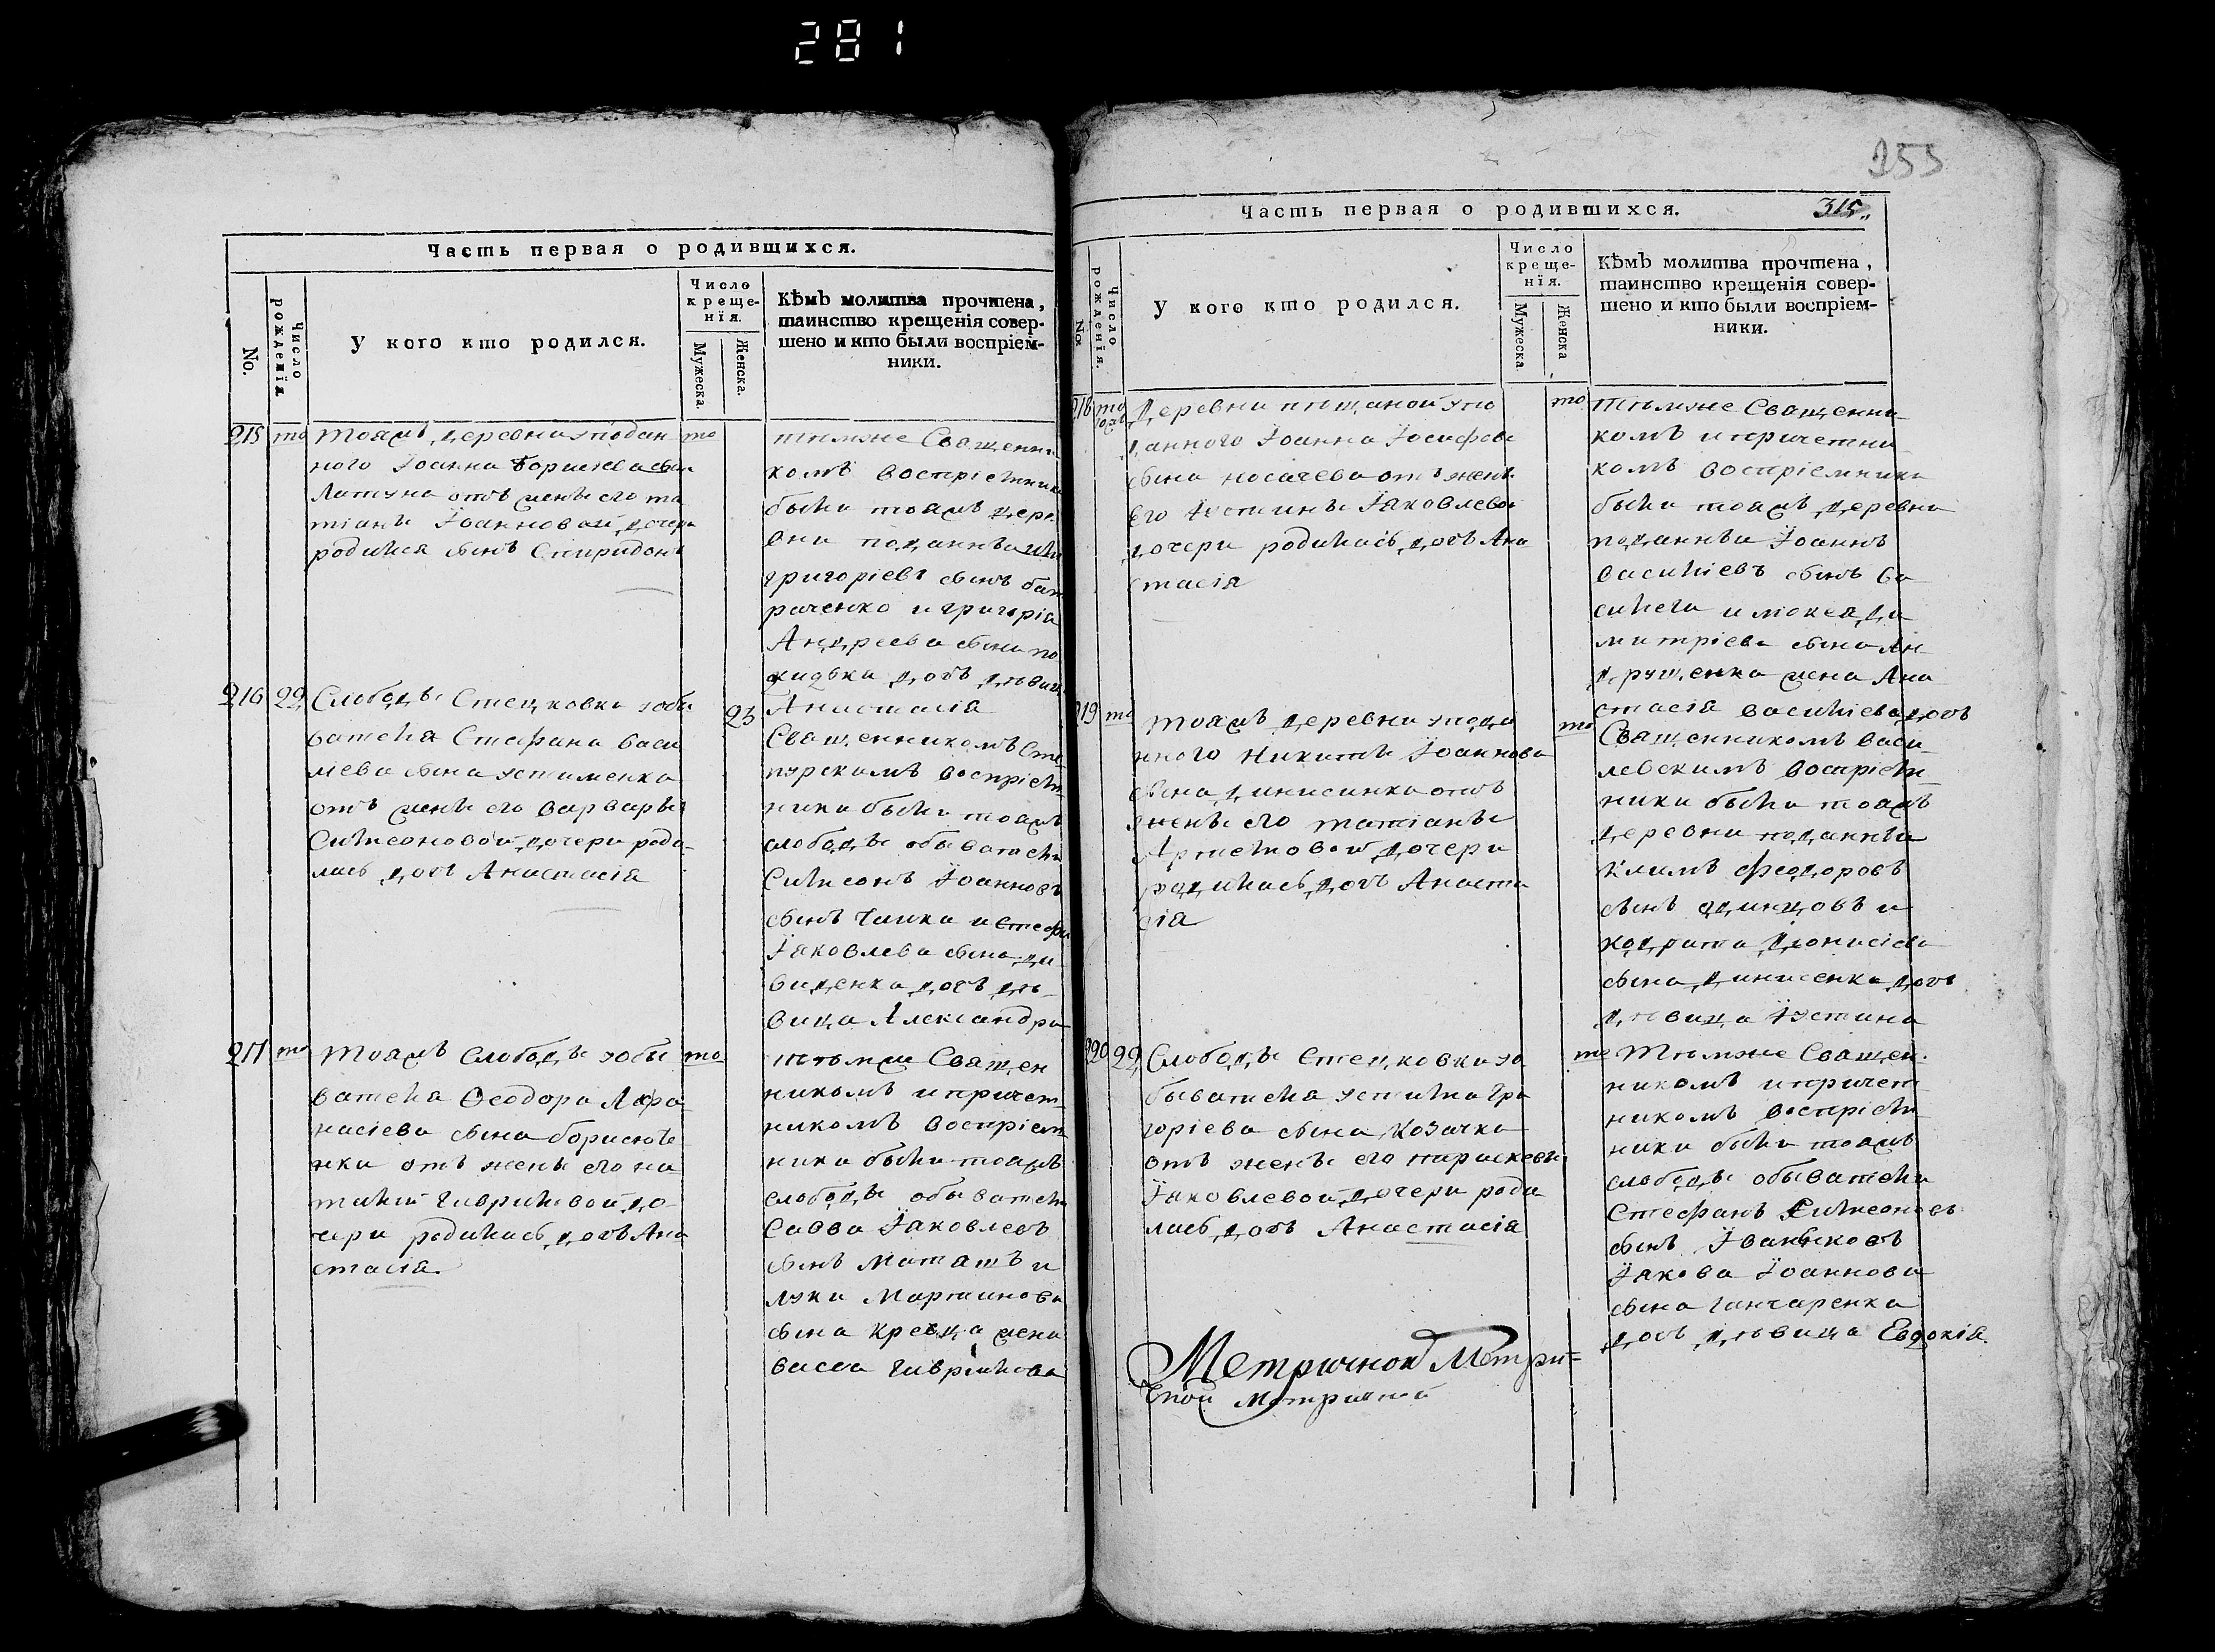 281
Часть первая о родившихся.
No.
Число рожденїя
У кого кто родился.
Число
креще-
нїя.
Мужеска.
Женска.
Кѣмъ молитва прочтена,
таинство крещенїя совер-
шено и кто были воспрїем-
ники.
215 то
тояжъ деревни уподан
ного Іоанна Борисова сына
отъ жены его та
тїаны Іоанновой дочери
родился сынъ Спиридонъ
то
тѣмже Священни
комъ воспрїемники
были тояжъ дере
вни подданныи
григорїевъ сынъ
раченко и григорїа
Андреева сына по
дочь дѣвица
Анастасїа
216 22
Слободы Стецковки уобы
вателя Стефана васи
лїева сына устименка
отъ жены его варвары
Симеоновой дочери роди
лась дочь Анастасїя
23
Священникомъ Сте
пурскимъ воспрїем
ники были тояжъ
слободы обыватели
Симеонъ Іоанновъ
сынъ Чайка и стефа
Іаковлева сына да
виденка дочь дѣ
вица Александра
217 то
тояжъ Слободы уобы
вателя Ѳеодора Афа
насїева сына борисюче
нки отъ жены его на
талїи гавриловой до
чери родилась дочь Ана
стасїя
то
тѣмже Священ
никомъ и причет
никомъ воспрїем
ники были тояжъ
слободы обыватели
Савва Іаковлевъ
сынъ и
луки Мартинова
сына кревца жена
васса гаврилова
253
Часть первая о родившихся.
315
No.
Число рожденїя.
У кого кто родился.
Число
креще-
нїя.
Мужеска
Женска
Кѣмъ молитва прочтена,
таинство крещенїя совер-
шено и кто были воспрїем-
ники.
218 то
Деревни пѣщаной упо
данного Іоанна Іосифова
сына носачева отъ жены
его Іустины Іаковлевой
дочери родилась дочь Ана
стасїя
то
тѣмже Священни
комъ и причетни
комъ воспрїемники
были тояжъ деревни
подданныи Іоаннъ
василїевъ сынъ
и мокея ди
митрїева сына Ан
друщенка жена Ана
стасїя василїева дочь
219 то
тояжъ деревни упода
нного Никиты Іоаннова
сына динисинка отъ
жены его татїаны
Артемовой дочери
родилась дочь Анаста
сїя
то
Священникомъ васи
левскимъ воспрїем
ники были тояжъ
деревни подданныи
климъ феодоровъ
сынъ одинцовъ и
кодрата Дїонисїева
сына динисенка дочь
дѣвица Іустина
220 22
Слободы Стецковки уо
бывателя устима Гри
горїева сына Козачка
отъ жены его параскевы
Іаковлевой дочери роди
лась дочь Анастасїя
то
тѣмже Священ
никомъ и причет
никомъ воспрїем
ники были тояжъ
слободы обыватели
Стефанъ Симеоновъ
сынъ
Іакова Іоаннова
сына ганчаренка
дочь дѣвица Евдокїя.
Метричной Метри=
чной Метричной